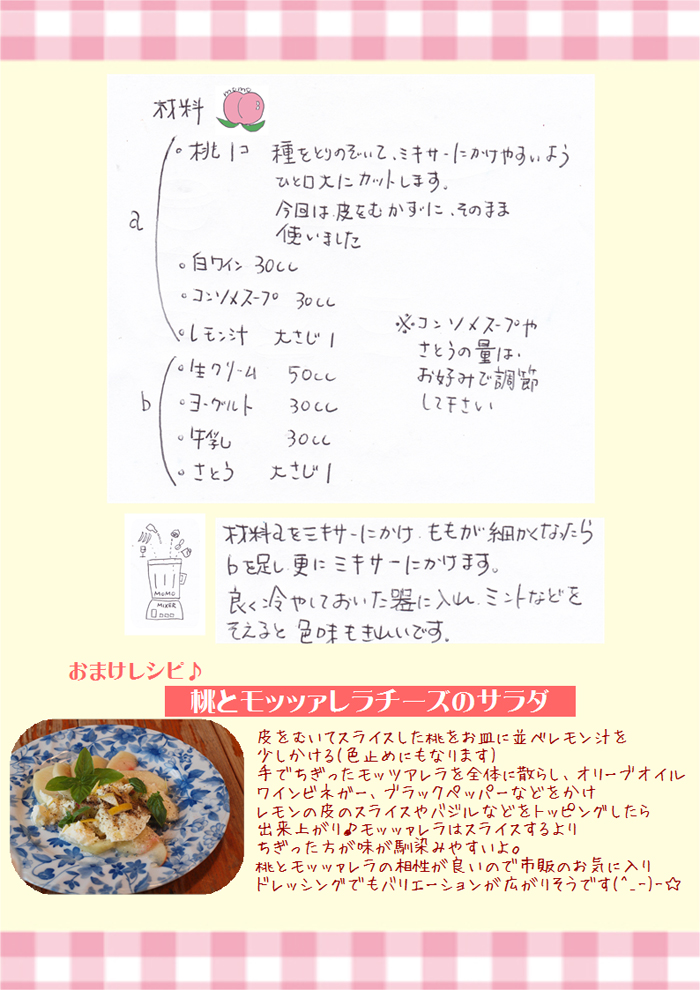 材料
momo
a
・桃1コ 種をとりのぞいて、ミキサーにかけやすいよう
ひと口大にカットします。
今回は、皮をむかずに、そのまま
使いました
・白ワイン 30cc
・コンソメスープ 30cc
・レモン汁 大さじ1
※コンソメスープや
さとうの量は、
お好みで調節
して下さい
b
・生クリーム 50cc
・ヨーグルト 30cc
・牛乳 30cc
・さとう 大さじ1
MOMO
MIXER
材料aをミキサーにかけ、ももが細かくなったら
bを足し、更にミキサーにかけます。
良く冷やしておいた器に入れ、ミントなどを
そえると色味もきれいです。
おまけレシピ♪
桃とモッツァレラチーズのサラダ
皮をむいてスライスした桃をお皿に並べレモン汁を
少しかける(色止めにもなります)
手でちぎったモッツアレラを全体に散らし、オリーブオイル
ワインビネガー、ブラックペッパーなどをかけ
レモンの皮のスライスやバジルなどをトッピングしたら
出来上がり♪モッツァレラはスライスするより
ちぎった方が味が馴染みやすいよ。
桃とモッツァレラの相性が良いので市販のお気に入り
ドレッシングでもバリエーションが広がりそうです(^_-)-☆